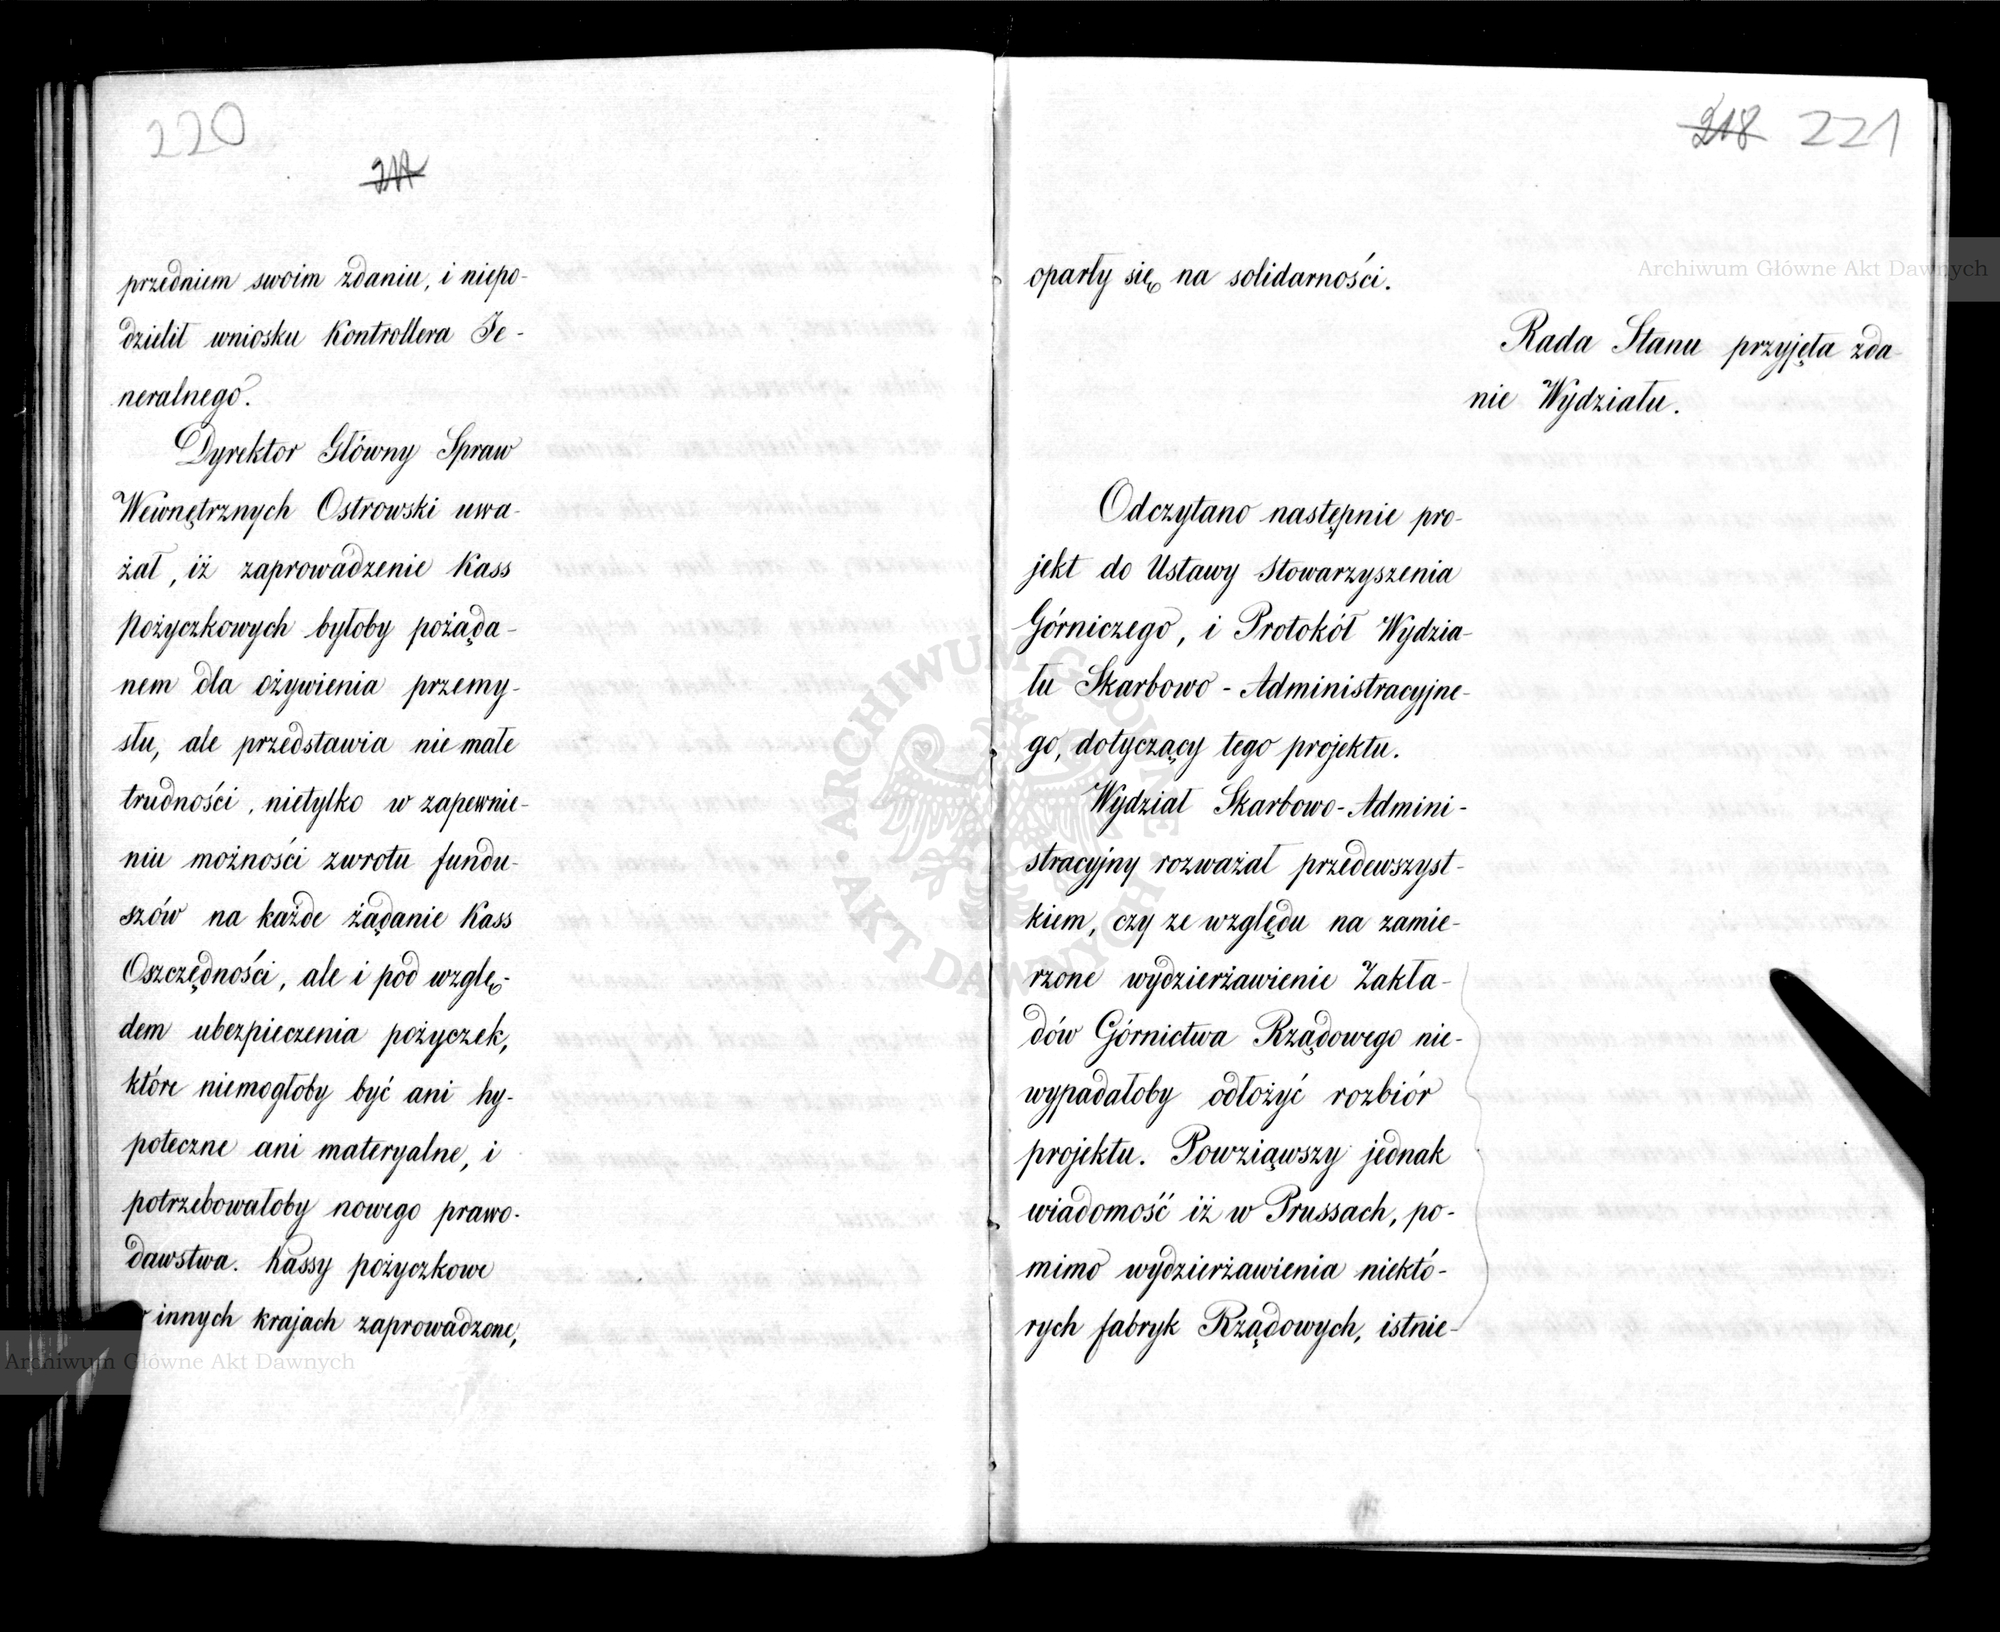 220
217
przedniem swoim zdaniu, i niepo-
dzielił wniosku Kontrollera Je-
neralnego.
Dyrektor Główny Spraw
Wewnętrznych Ostrowski uwa-
żał, iż zaprowadzenie Kass
Pożyczkowych byłoby pożąda-
nem dla ożywienia przemy-
słu, ale przedstawia nie małe
trudności, nietylko w zapewnie-
niu możności zwrotu fundu-
szów na każde żądanie Kass
Oszczędności, ale i pod wzglę-
dem ubezpieczenia pożyczek,
które niemogłoby być ani hy-
poteczne ani materyalne, i
potrzebowałoby nowego prawo-
dawstwa. Kassy pożyczkowe
innych krajach zaprowadzone,
Archiwum Główne Akt Dawnych
218 221
Archiwum Główne Akt Dawnych
oparły się na solidarności.
Rada Stanu przyjęła zda-
nie Wydziału.
Odczytano następnie pro-
jekt do Ustawy Stowarzyszenia
Górniczego, i Protokół Wydzia-
łu Skarbowo-Administracyjne-
go, dotyczący tego projektu.
Wydział Skarbowo-Admini-
stracyjny rozważał przedewszyst-
kiem, czy ze względu na zamie-
rzone wydzierżawienie Zakła-
dów Górnictwa Rządowego nie-
wypadałoby odłożyć rozbiór
projektu. Powziąwszy jednak
wiadomość iż w Prussach, po-
mimo wydzierżawienia niektó-
rych fabryk Rządowych, istnie-
ARCHIWUM GŁÓWNE AKT DAWNYCH